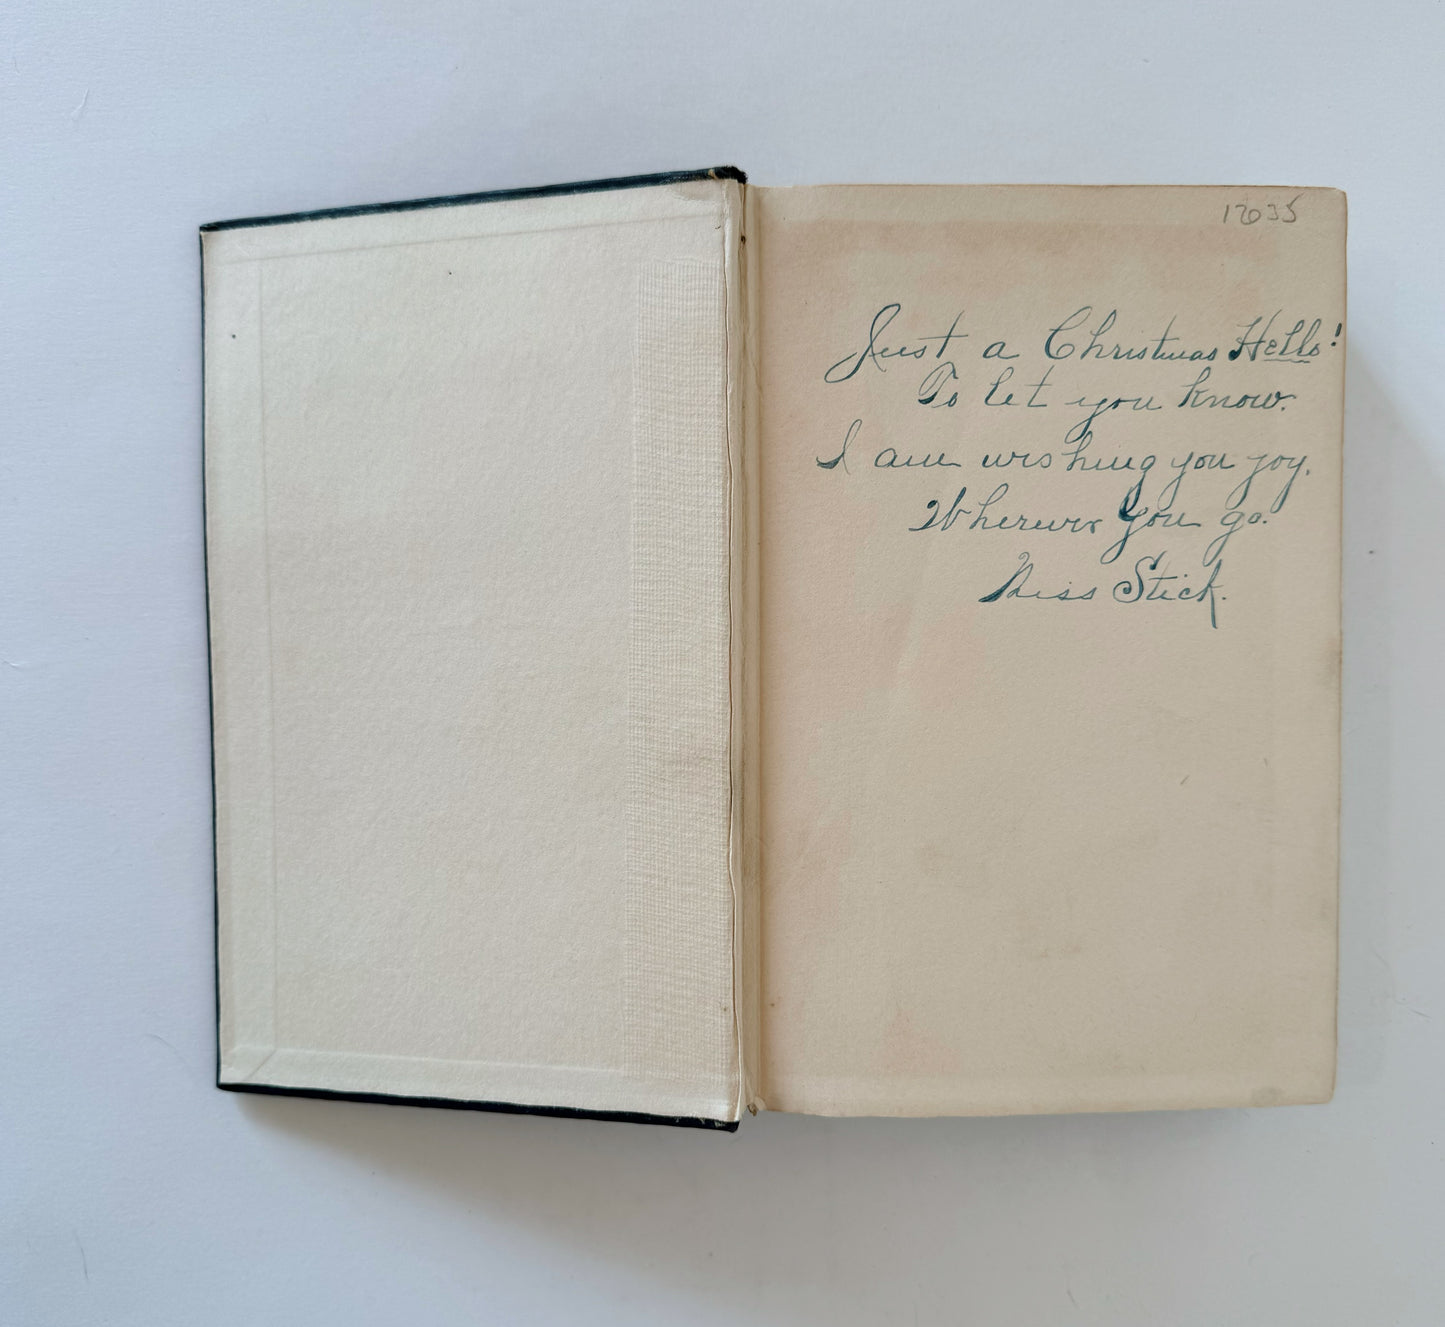 12035
Just a Christmas Hello!
To let you know.
I am wishing you joy.
Wherever you go.
Miss Stick.